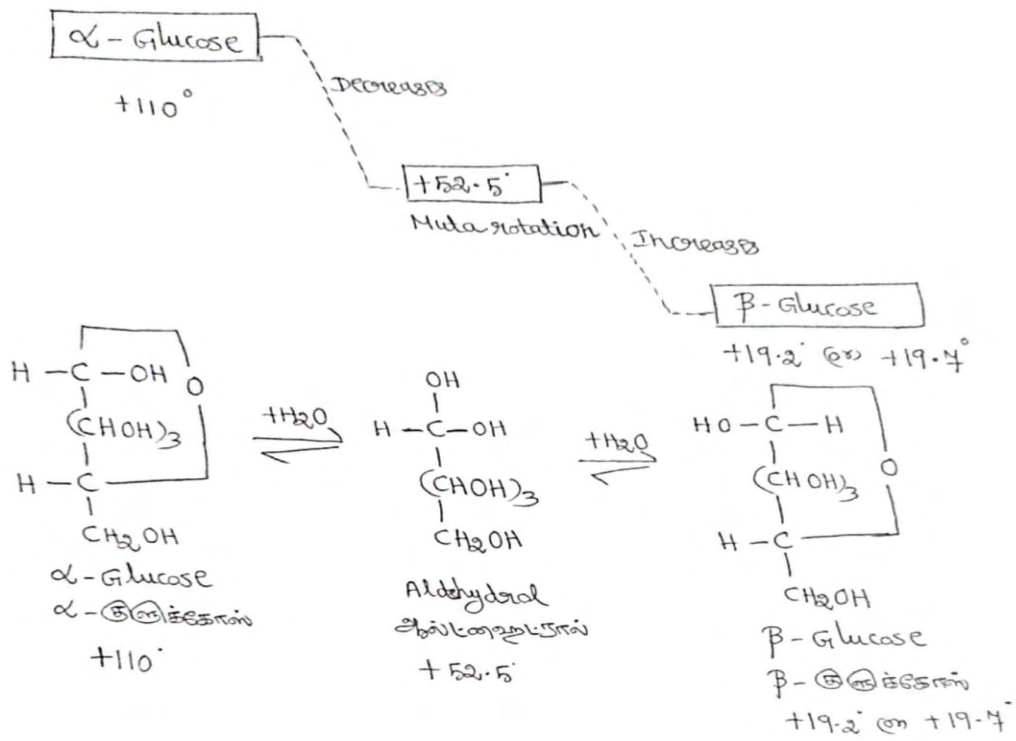 α - Glucose
+110°
Decreases
+52.5°
Muta rotation
Increases
β - Glucose
+19.2° (or) +19.7°
H - C - OH
O
(CHOH)3
H - C
CH2OH
α - Glucose
α - குளுக்கோஸ்
+110°
+H2O
OH
H - C - OH
(CHOH)3
CH2OH
Aldehydrol
ஆல்டிஹைட்ரால்
+52.5°
+H2O
HO - C - H
O
(CHOH)3
H - C
CH2OH
β - Glucose
β - குளுக்கோஸ்
+19.2° (or) +19.7°